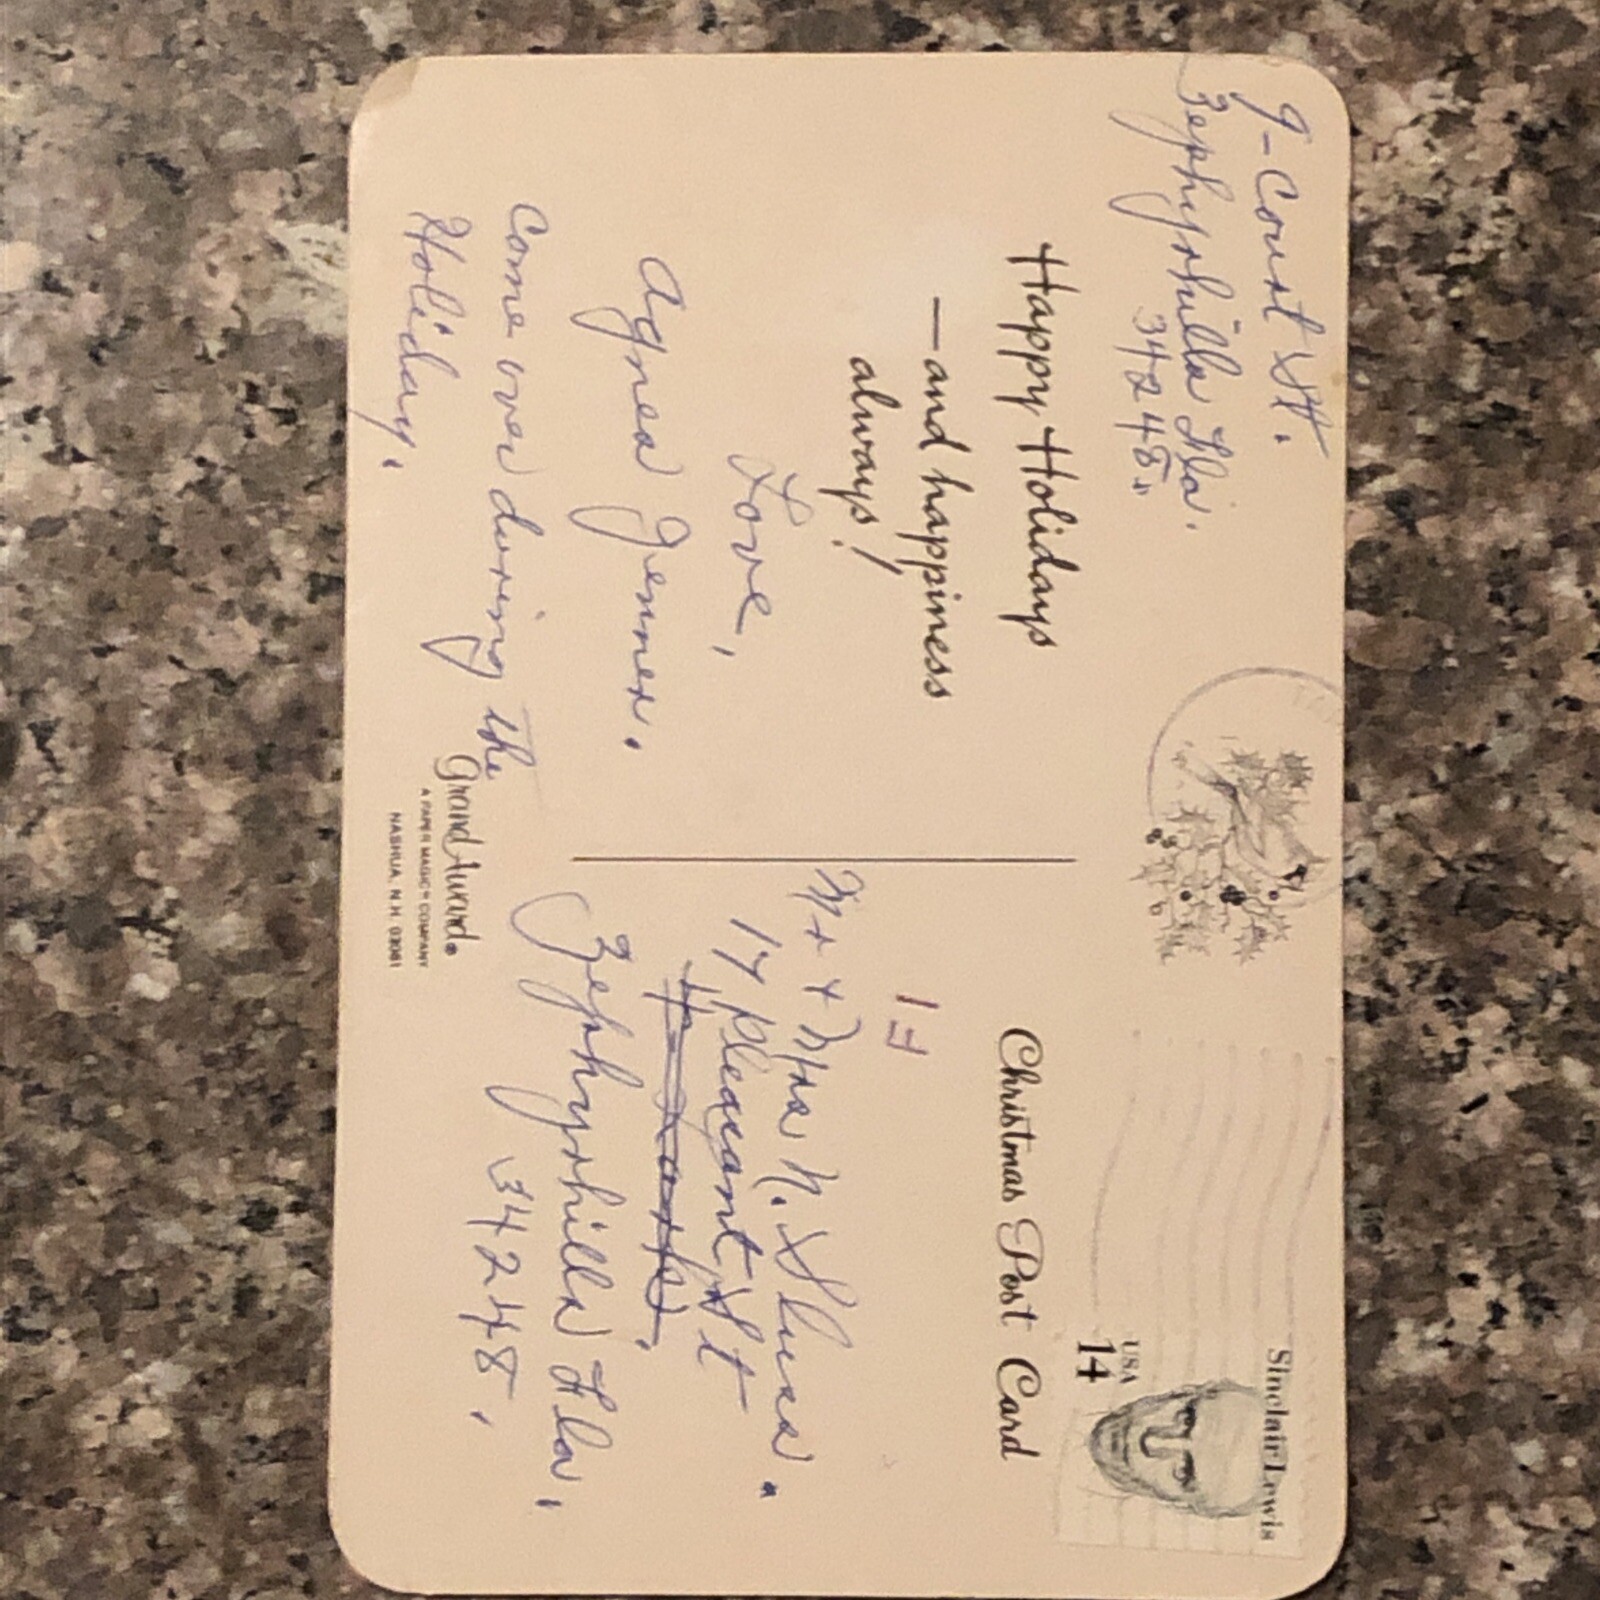 9-Court St.
Zephyrhills Fla.
34248.
Happy Holidays
—and happiness
always!
Love,
Agnes Jenner.
Come over during the
Holiday.
Grand Award.
A PAPER MAGIC COMPANY
NASHUA, N.H. 03061
Sinclair Lewis
USA
14
Christmas Post Card
1F
Mr + Mrs N. Sluss.
17 Pleasant St
Zephyrhills Fla,
34248.